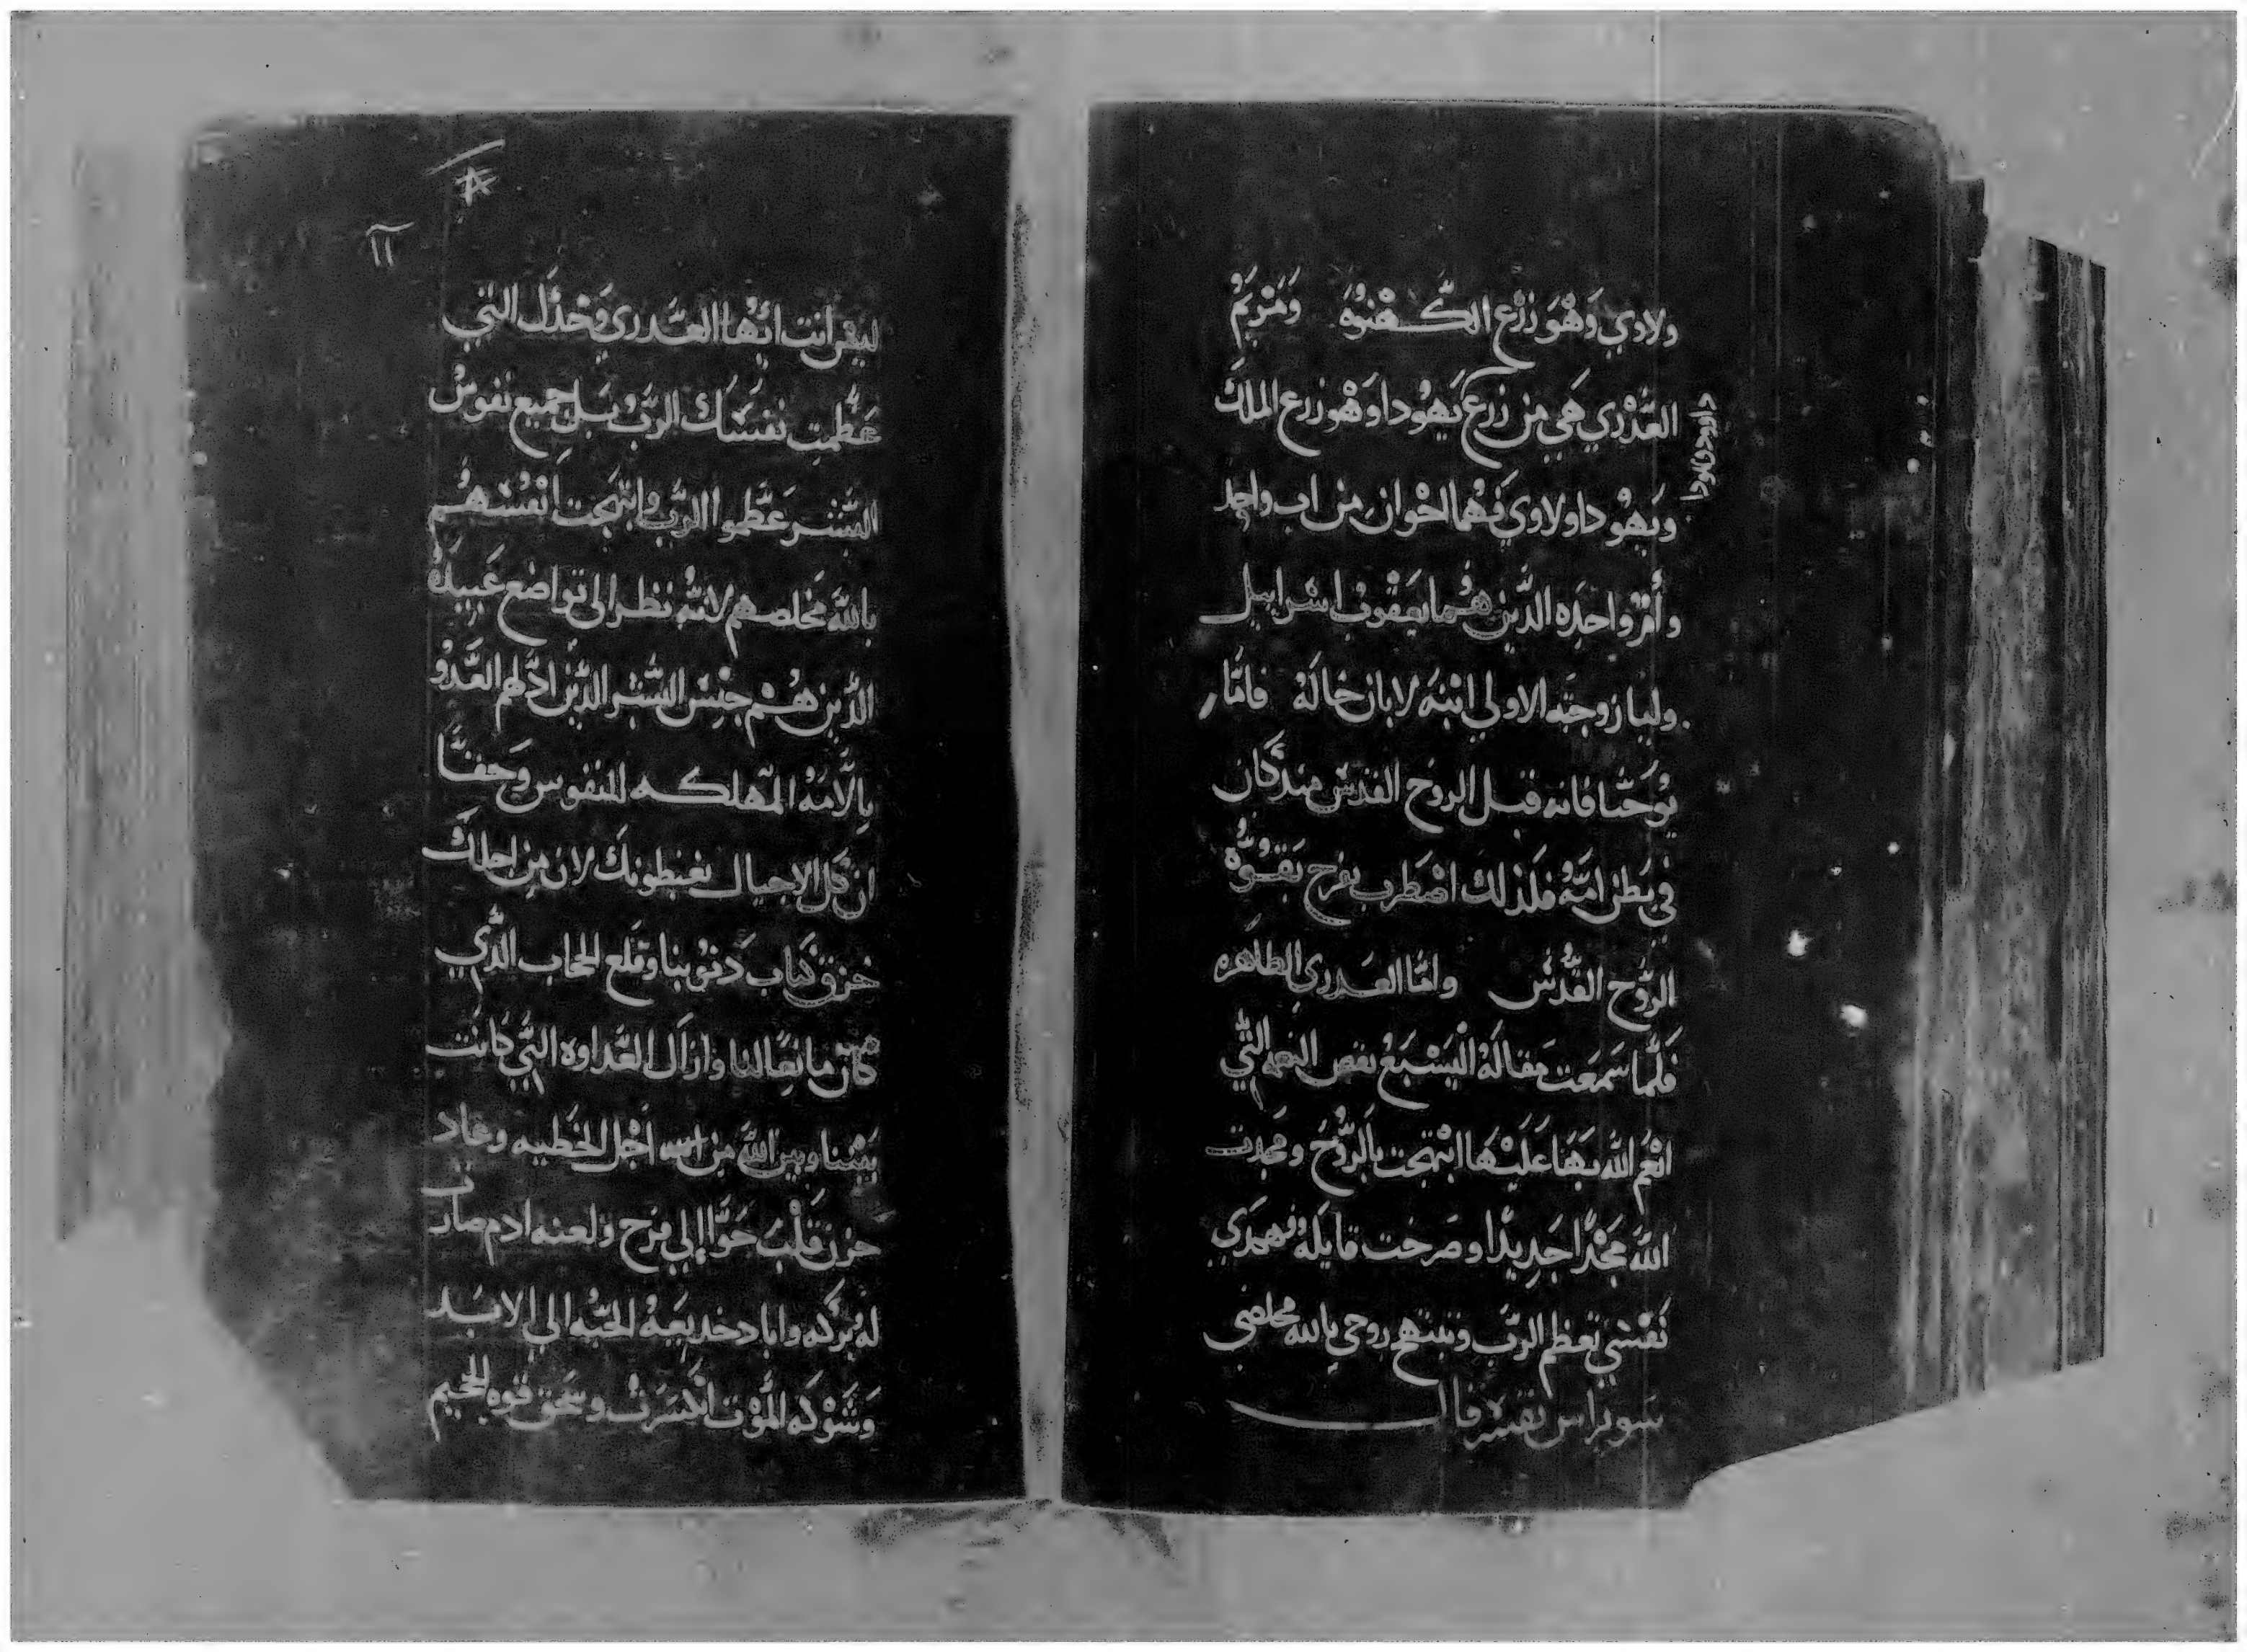 ولاوي وَهْوَ زرْع الكهنوه ومَرْيَمْ
العَدْرِي هَي مِن زرع يَهُودا وَهْو زرع الملك
داوود
وَيَهْودا ولاوي فَهُما اخْوان مِن اب واحِد
وأمْ واحِده الدّين هُما يَعْقوب اسْراييل
وليا زوجَته الاولي ابْنَة لابان خالَهُ فامَّا
يُوْحَنّا فانه قبل الروح القدس مند كان
في بَطن امَّهُ فلذلك اضطرب بفرح بَقوَّة
الرُّوح القُدُسْ وامّا العدري الطاهره
فلَمّا سَمعَت مَقالة اليسْبَعْ بعض النعم التَّي
انْعَم اللّه بَهَا عَلَيْها ابْتهجت بالرُّوحْ ومجدت
اللّه مَجْدًا جَدِيدًا وصَرخت قايله
نَفْسَي تعظم الرَبّ وتبتهج روحي بالله مخلصى
سويراس تفسَير قال
١١
ليسَ انت ايُّها العَدري وَحْدَك التي
عَظَّمتِ نفسُك الرَبّ بَل جميع نفوسْ
البَشَر عَظَّموا الرَبّ وابْتَهجت انْفُسَهُم
باللَّه مخلصهم لانَّهُ نظر الى تواضع عَبيدَهُ
الدَّين هُمْ جِنْس البشر الدَّين ادَلهم العَدوْ
بالآمَهْ المَهلكه للنفوس وَحَقًّا
ان كل الاجيال يغبطونك لان مِن اجلك
خزق كتاب دَنوُبنا وقلع الحجاب الدَّي
كان مانعًا لنا وازال العَداوه التَّي كانت
بَيْننا وبين اللّه مِن اجْل الخَطيه وعاد
حزن قلْب حَوّا إلي فرح ولعنه ادم صارت
لهُ بركه واباد خديعَة الحَيَّه الي الابَد
وشَوْكة المَوْت انْكسَرَتْ وسحَق قوه الجحيم